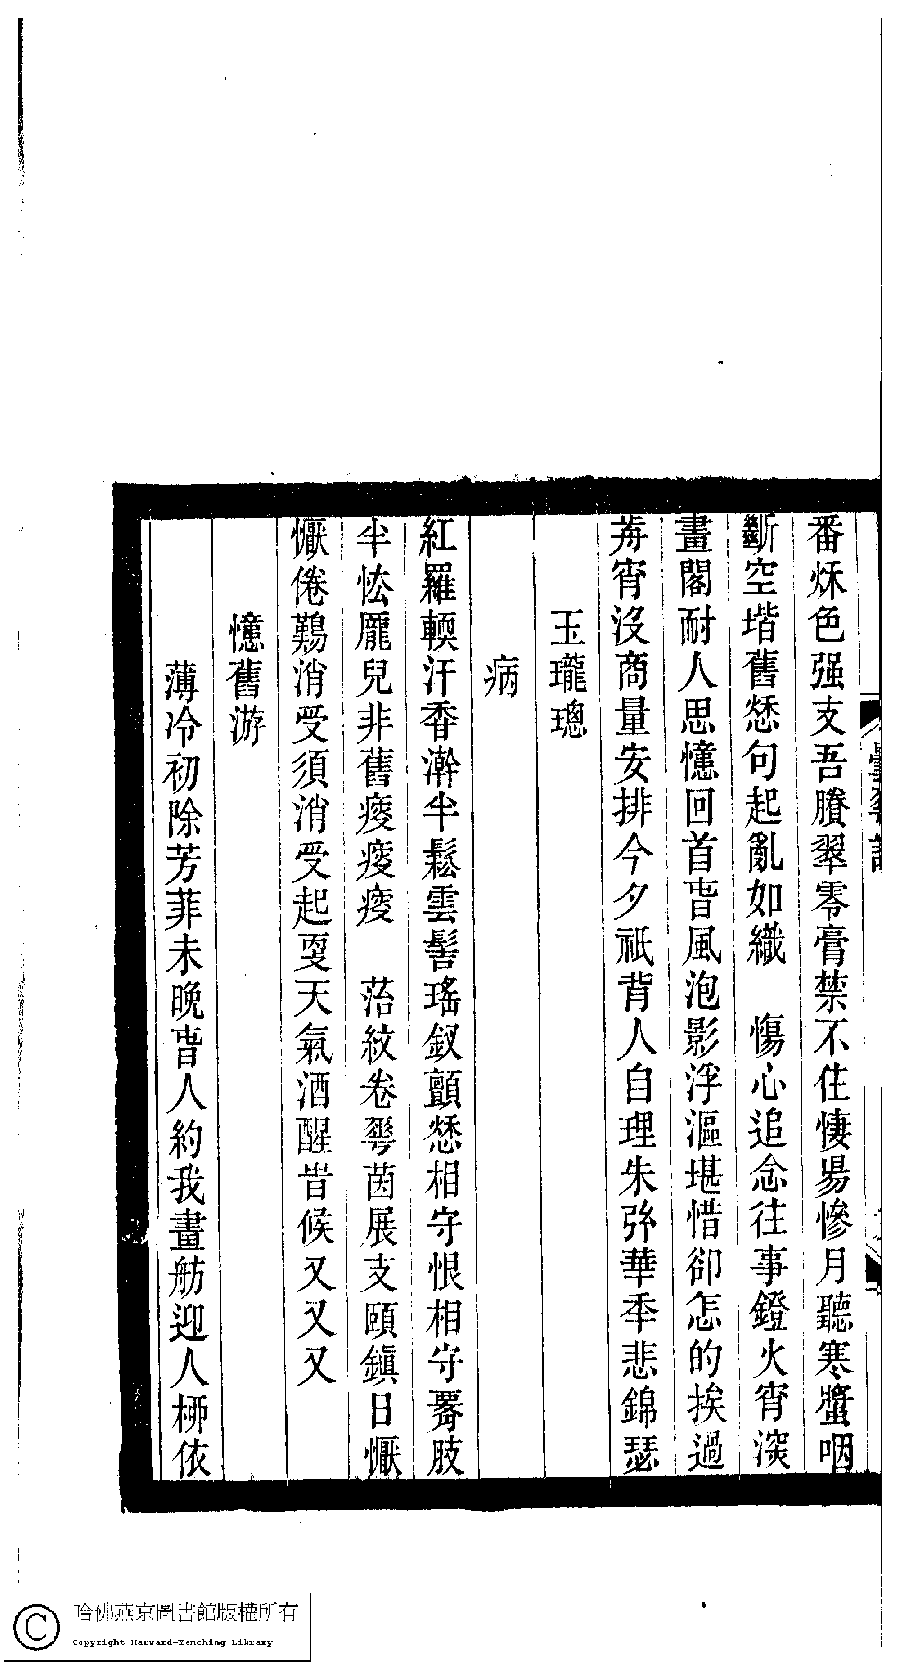 番秌色强支吾賸翠零膏禁不住悽昜慘月聽寒螿咽
斷空堦舊愁句起亂如織　傷心追念往事鐙火宵深
畫閣耐人思憶回首旾風泡影浮漚堪惜卻怎的挨過
歬宵沒商量安排今夕祇背人自理朱弦華秊悲錦瑟
玉瓏璁
病
紅羅輭汗香澣半鬆雲髻瑤釵顫愁相守恨相守肢
半㤼龐兒非舊瘦瘦瘦　菭紋卷茵展支頤鎮日懨
懨倦難消受須消受起耎天氣酒醒旹候又又又
憶舊游
薄冷初除芳菲未晚旾人約我畫舫迎人桺依
哈佛燕京圖書館版權所有
Copyright Harvard-Yenching Library